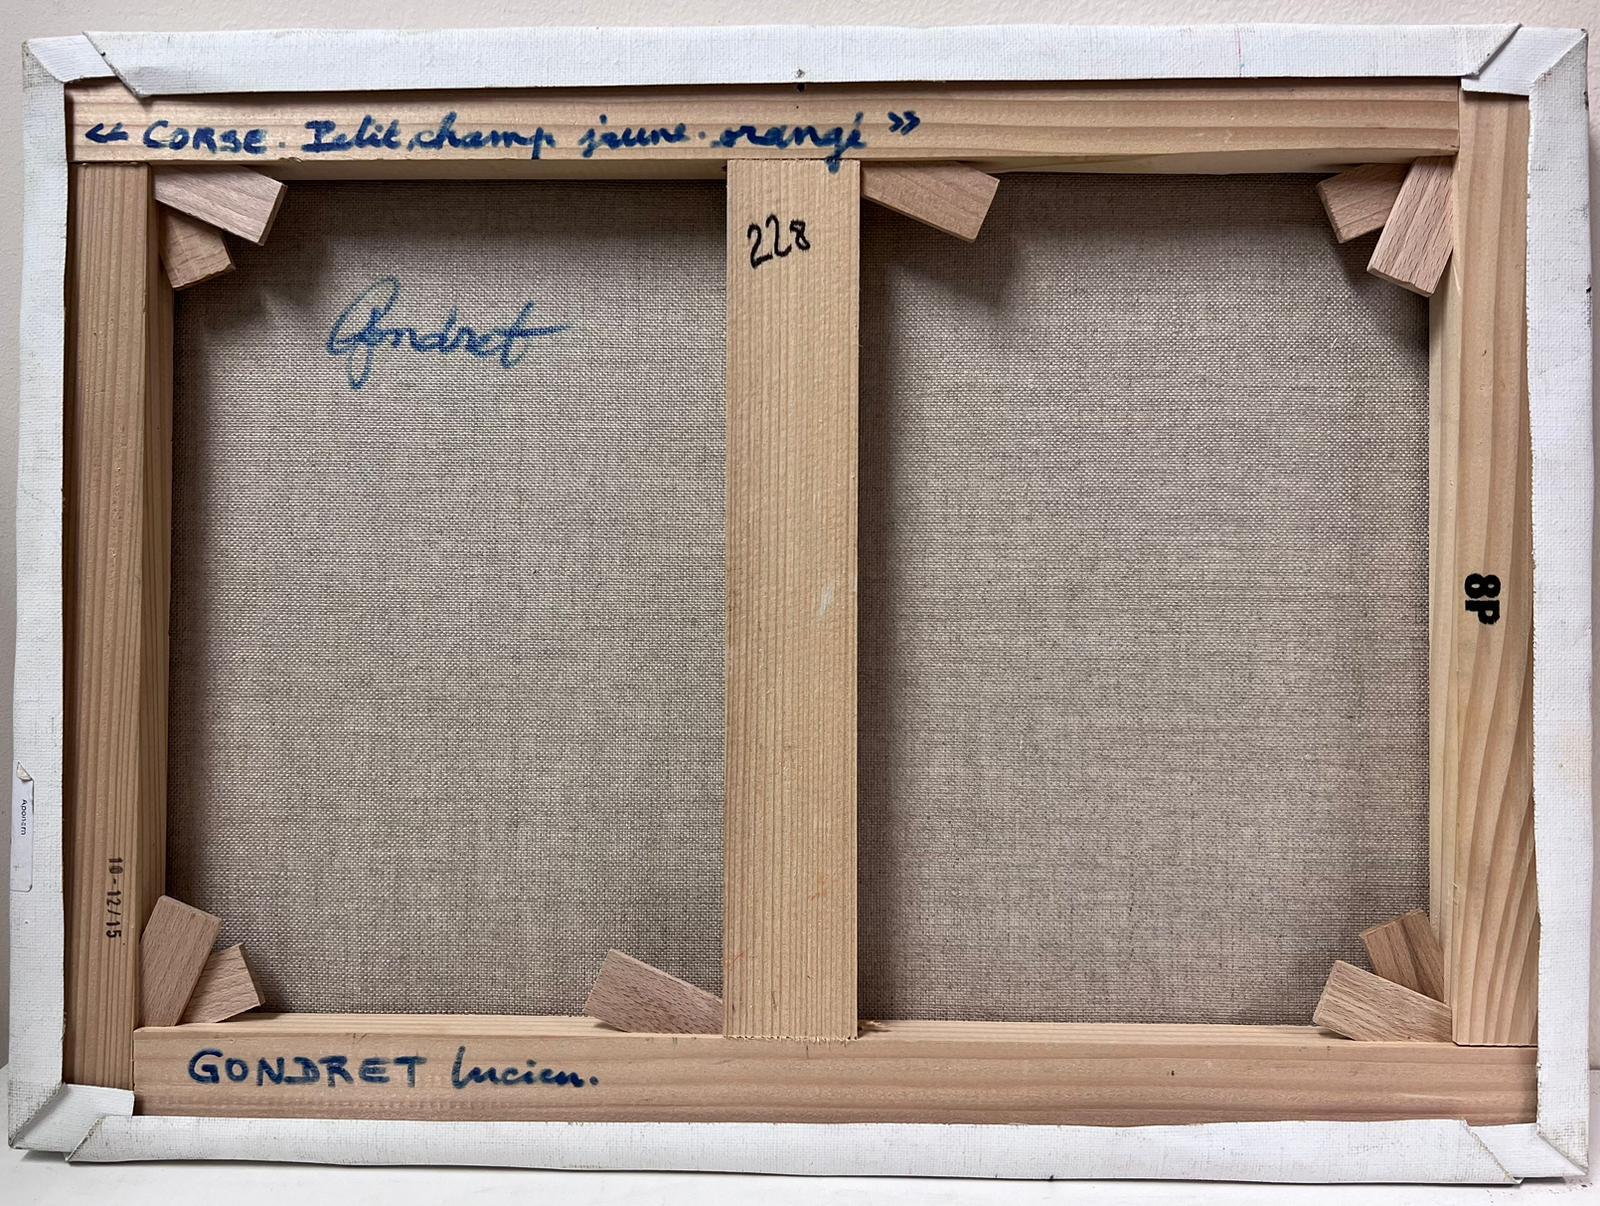 « CORSE. Petit champ jaune. orangé »
228
Gondret
8P
10-12/15
GONDRET Lucien.